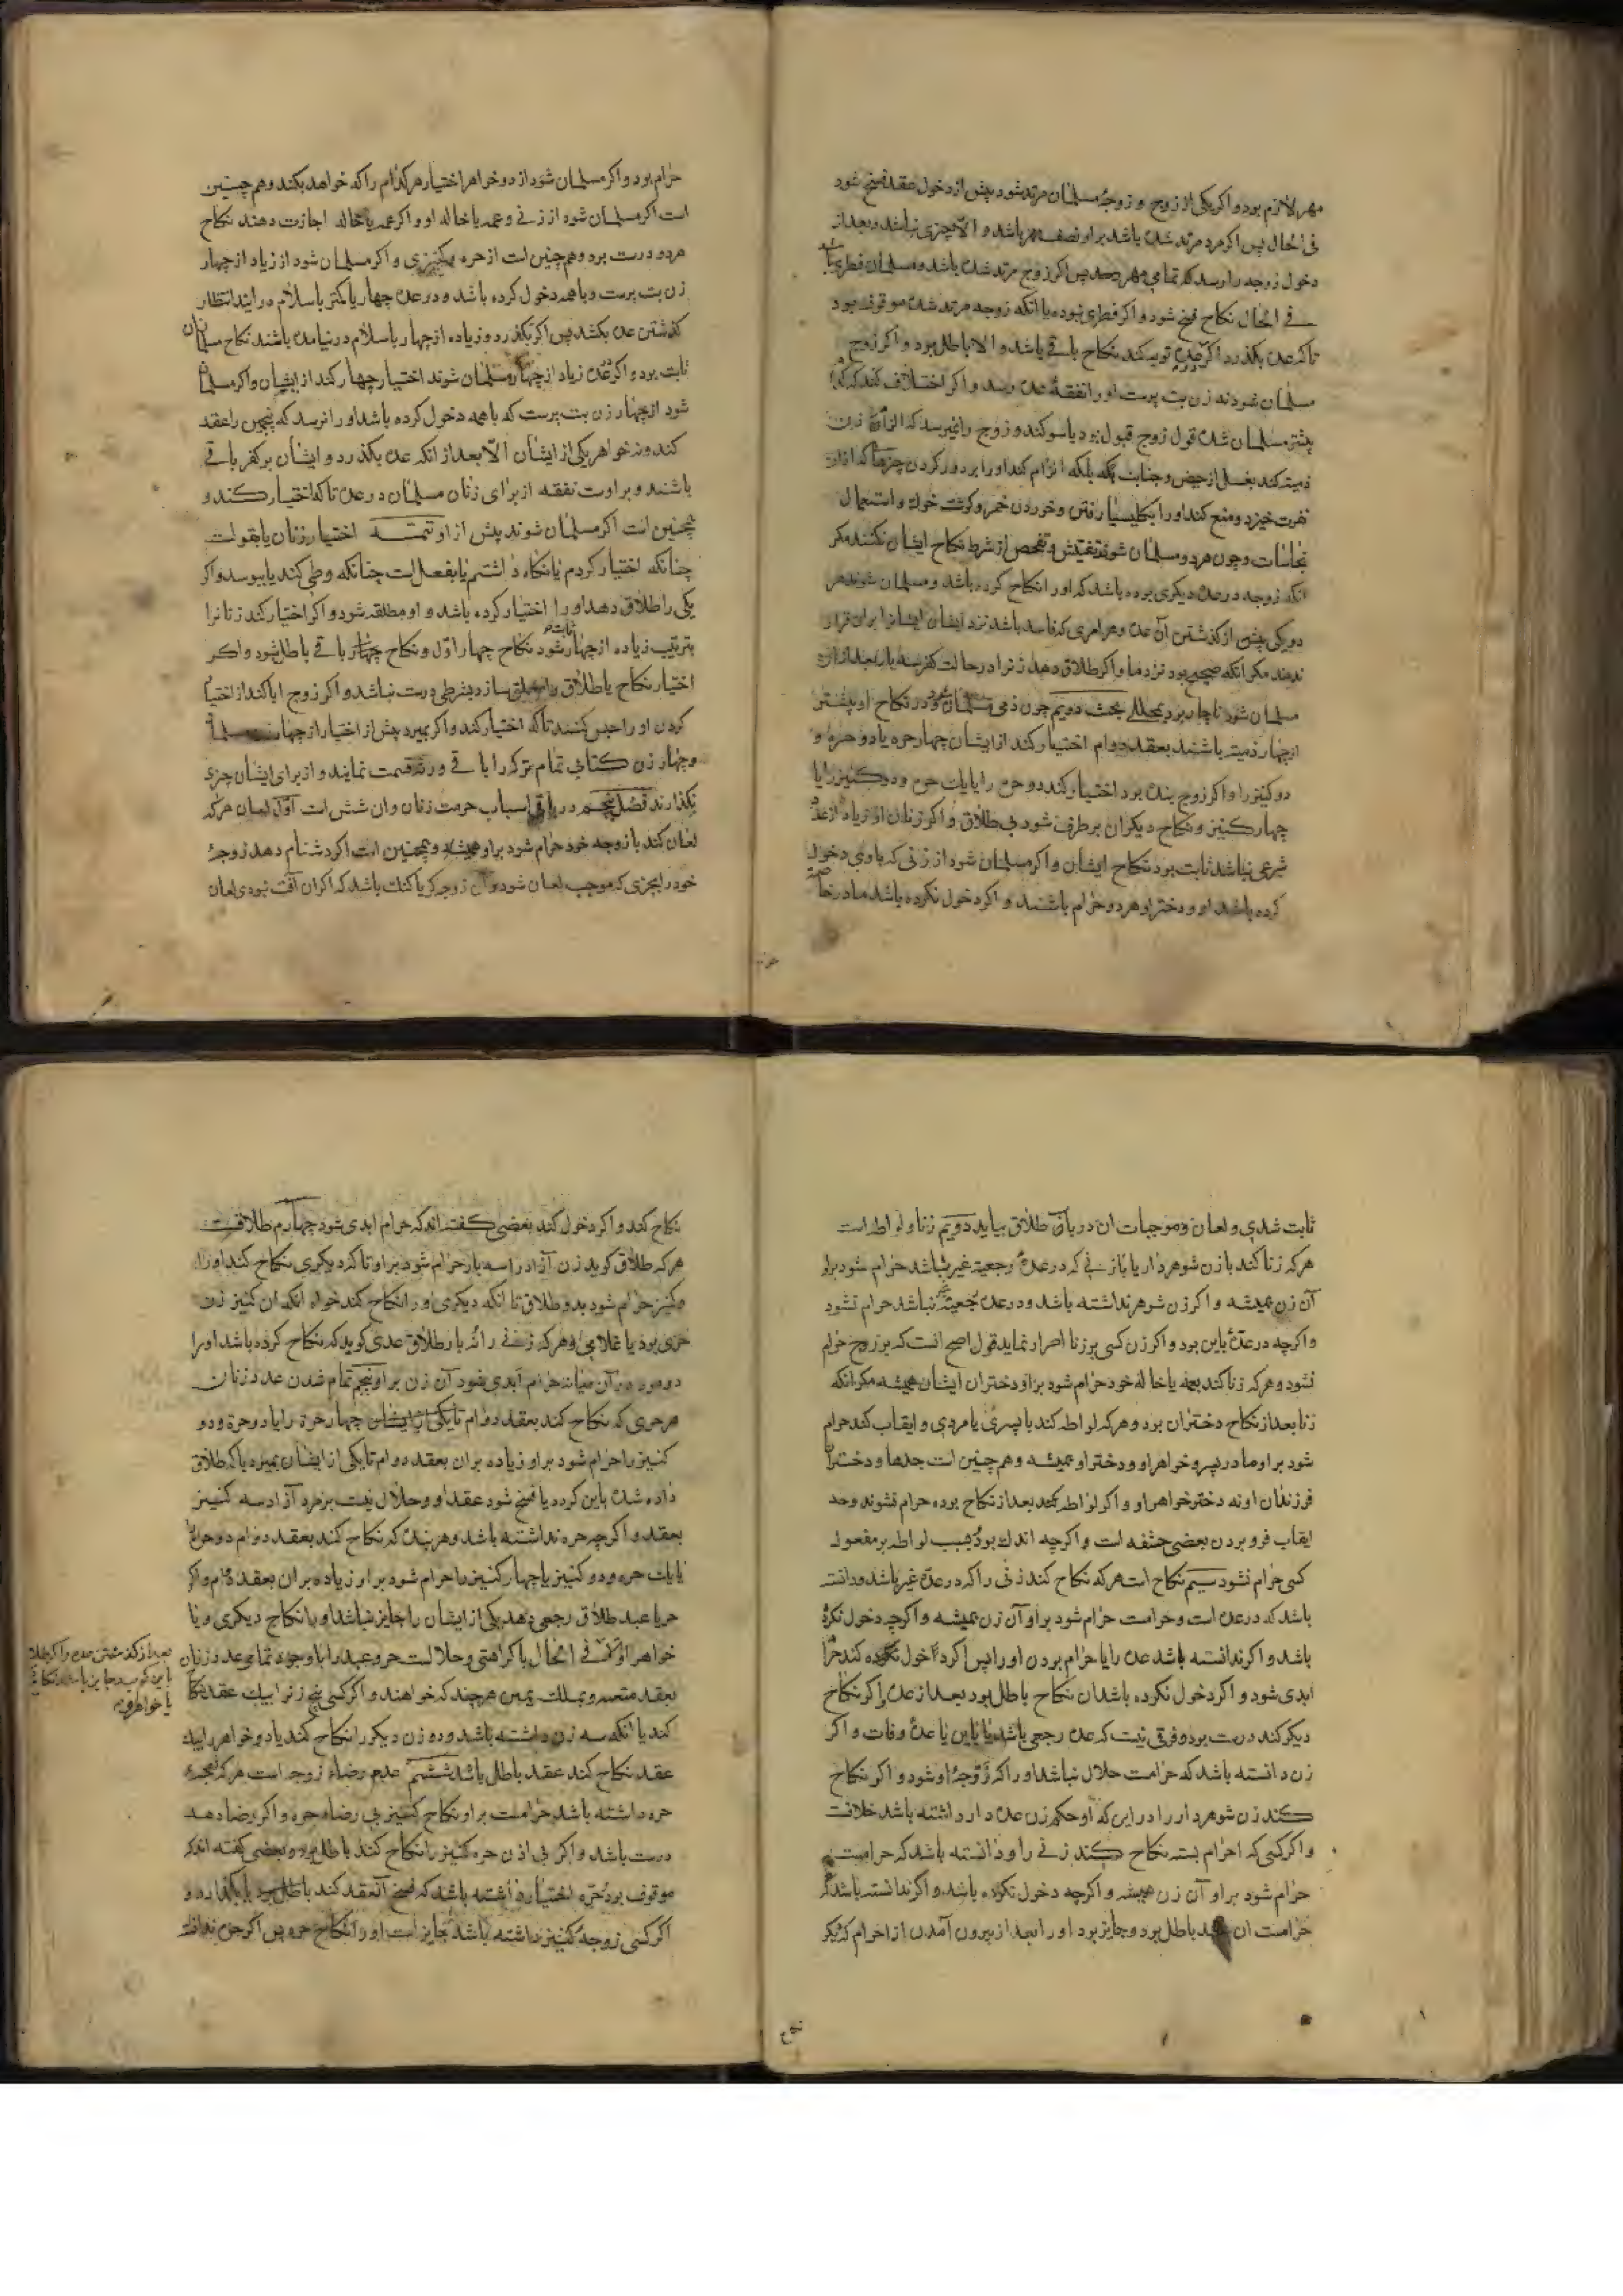 مهر لازم بود و اکر یکی از زوج و زوجهٔ مسلمان مرتد شود پیش از دخول عقد فسخ شود
فی الحال پس اکر مرد مرتد شده باشد بر او نصف مهر باشد و الا چیزی نباشد و بعد از
دخول زوجه را رسد که تمامی مهر پس اکر زوج مرتد شده باشد و مسلمان فطری باشد
فی الحال نکاح فسخ شود و اکر فطری نبوده یا آنکه زوجه مرتد شده موقوف بود
تا که عده بکذرد اکر توبه کند نکاح باقی باشد و الا باطل بود و اکر زوج
مسلمان شود نه زن بت پرست او را نفقهٔ عده رسد و اکر اختلاف کنند که
پیشتر مسلمان شده قول زوج قبول بود با سوکند و زوج را نمیرسد که الزام زن
ذمیه کند بغسل از حیض و جنابت بلکه الزام کند او را بر دور کردن چیزها که از او
نفرت خیزد و منع کند او را بکلیسیا رفتن و خوردن خمر و کوشت خوک و استعمال
نجاسات و چون هر دو مسلمان شوند تفتیش و تفحص از شرط نکاح ایشان نکنند مکر
آنکه زوجه در عده دیکری بوده باشد که او را نکاح کرده باشد و مسلمان شوند هر
دو یکی پیش از کذشتن آن عده و هر امری که فاسد باشد نزد ایشان ایشانرا بران قرار
ندهند مکر آنکه صحیح بود نزد ما و اکر طلاق دهد زنرا در حالت کفر سه بار بعد از آن
مسلمان شود ناچار بود بمحلل بحث دویم چون ذمی مسلمان شود و در نکاح او بیشتر
از چهار ذمیه باشند بعقد دوام اختیار کند از ایشان چهار حره یا دو حره و
دو کنیز را و اکر زوج بنده بود اختیار کند دو حره را یا یک حره و دو کنیز را یا
چهار کنیز و نکاح دیکران بر طرف شود بی طلاق و اکر زنان او زیاده از عدد
شرعی نباشد ثابت بود نکاح ایشان و اکر مسلمان شود از زنی که با وی دخول
کرده باشد او و دختر او هر دو حرام باشند و اکر دخول نکرده باشد مادر خاصه
حرام بود و اکر مسلمان شود از دو خواهر اختیار هر کدام را که خواهد بکند و هم چنین
است اکر مسلمان شود از زنی و عمه یا خاله او و اکر عمه یا خاله اجازت دهند نکاح
هر دو درست بود و هم چنین است از حره و کنیزی و اکر مسلمان شود از زیاد از چهار
زن بت پرست و با همه دخول کرده باشد و در عده چهار یا کمتر باسلام در ایند انتظار
کذشتن عده بکشد پس اکر بکذرد و زیاده از چهار باسلام در نیامده باشند نکاح مسلمانان
ثابت بود و اکر در عده زیاد از چهار مسلمان شوند اختیار چهار کند از ایشان و اکر مسلمان
شود از چهار زن بت پرست که با همه دخول کرده باشد او را نرسد که پنجمین را عقد
کند و نه خواهر یکی از ایشان الا بعد از آنکه عده بکذرد و ایشان بر کفر باقی
باشند و بر اوست نفقه از برای زنان مسلمان در عده تا که اختیار کند و
همچنین است اکر مسلمان شوند پیش از او تتمه اختیار زنان یا بقولست
چنانکه اختیار کردم یا نکاه داشتم یا بفعل است چنانکه وطی کند یا ببوسد و اکر
یکی را طلاق دهد او را اختیار کرده باشد و او مطلقه شود و اکر اختیار کند زنانرا
بترتیب زیاده از چهار ثابت شود نکاح چهار اول و نکاح باقی باطل شود و اکر
اختیار نکاح یا طلاق را معلق سازد بشرطی درست نباشد و اکر زوج ابا کند از اختیار
کردن او را حبس کنند تا که اختیار کند و اکر بمیرد پیش از اختیار از چهار مسلمان
و چهار زن کتابی تمام ترکه را باقی ورثه قسمت نمایند و از برای ایشان چیزی
نکذارند فصل پنجم در باقی اسباب حرمت زنان و ان شش است اول لعان هر که
لعان کند با زوجه خود حرام شود بر او همیشه و همچنین است اکر دشنام دهد زوجهٔ
خود را بچیزی که موجب لعان شود و آن زوجه کر یا کنک باشد که اکر ان آفت نبودی لعان
ثابت شدی و لعان و موجبات ان در باب طلاق بیاید دویم زنا و لواطه است
هر که زنا کند با زن شوهر دار یا با زنی که در عدهٔ رجعیه غیر باشد حرام شود بر او
آن زن همیشه و اکر زن شوهر نداشته باشد و در عدهٔ رجعیه نباشد حرام نشود
و اکر چه در عدهٔ باین بود و اکر زن کسی بر زنا اصرار نماید قول اصح انست که بر زوج حرام
نشود و هر که زنا کند بعمه یا خالهٔ خود حرام شود بر او دختران ایشان همیشه مکر آنکه
زنا بعد از نکاح دختران بود و هر که لواطه کند با پسری یا مردی و ایقاب کند حرام
شود بر او مادر پسر و خواهر او و دختر او همیشه و هم چنین است جدها و دختران
فرزندان او نه دختر خواهر او و اکر لواطه کند بعد از نکاح بوده حرام نشوند و حد
ایقاب فرو بردن بعضی حشفه است و اکر چه اندک بود و بسبب لواطه بر مفعول
کسی حرام نشود سیم نکاح است هر که نکاح کند زنی را که در عدهٔ غیر باشد و دانسته
باشد که در عده است و حرامست حرام شود بر او آن زن همیشه و اکر چه دخول نکرده
باشد و اکر ندانسته باشد عده را یا حرام بودن او را پس اکر دخول کند حرام
ابدی شود و اکر دخول نکرده باشد ان نکاح باطل بود بعد از عده اکر نکاح
دیکر کند درست بود و فرقی نیست که عده رجعی باشد یا باین یا عدهٔ وفات و اکر
زن دانسته باشد که حرامست حلال نباشد او را که زوجهٔ او شود و اکر نکاح
کند زن شوهر دار را در این که او حکم زن عده دار داشته باشد خلافست
و اکر کسی که احرام بسته نکاح کند زنی را و دانسته باشد که حرامست
حرام شود بر او آن زن همیشه و اکر چه دخول نکرده باشد و اکر ندانسته باشد که
حرامست ان عقد باطل بود و جایز بود او را بعد از بیرون آمدن از احرام که دیکر
نکاح
نکاح کند و اکر دخول کند بعضی کفته اند که حرام ابدی شود چهارم طلاقست
هر که طلاق کوید زن آزاد را سه بار حرام شود بر او تا که دیکری نکاح کند او را
و کنیز حرام شود بدو طلاق تا آنکه دیکری او را نکاح کند خواه آنکه ان کنیز زن
حری بود یا غلامی و هر که زنی را نه بار طلاق عدی کوید که نکاح کرده باشد او را
دو مرد در آن میانه حرام ابدی شود آن زن بر او پنجم تمام شدن عدد زنان
هر حری که نکاح کند بعقد دوام چهار حره را یا دو حره و دو
کنیز را حرام شود بر او زیاده بر ان بعقد دوام تا یکی از ایشان بمیرد یا که طلاق
داده شده باین کردد یا فسخ شود عقد او و حلال نیست بر مرد آزاد سه کنیز
بعقد و اکر چه حره نداشته باشد و هر بنده که نکاح کند بعقد دوام دو حره
یا یک حره و دو کنیز یا چهار کنیز را حرام شود بر او زیاده بر ان بعقد دوام و اکر
حر یا عبد طلاق رجعی دهد یکی از ایشان را جایز نباشد او را نکاح دیکری و نا
خواهر او فی الحال با کراهتی و حلالست حر و عبد را با وجود تمامی عدد زنان
بعد از کذشتن عده و اکر طلاق
باین کوید جایز باشد نکاح
یا خواهر او
بعقد متعه و بملک یمین هر چند که خواهند و اکر کسی پنج زنرا بیک عقد نکاح
کند یا آنکه سه زن داشته باشد و دو زن دیکر را نکاح کند یا دو خواهر را بیک
عقد نکاح کند عقد باطل باشد ششم عدم رضاء زوجه است هر که زوجهٔ
حره داشته باشد حرامست بر او نکاح کنیز بی رضاء حره و اکر رضا دهد
درست باشد و اکر بی اذن حره کنیز را نکاح کند باطل بود و بعضی کفته اند که
موقوف بود حره اختیار داشته باشد که فسخ آن عقد کند یا بکذارد و
اکر کسی زوجهٔ کنیز داشته باشد جایز است او را نکاح حره پس اکر حره ندانسته